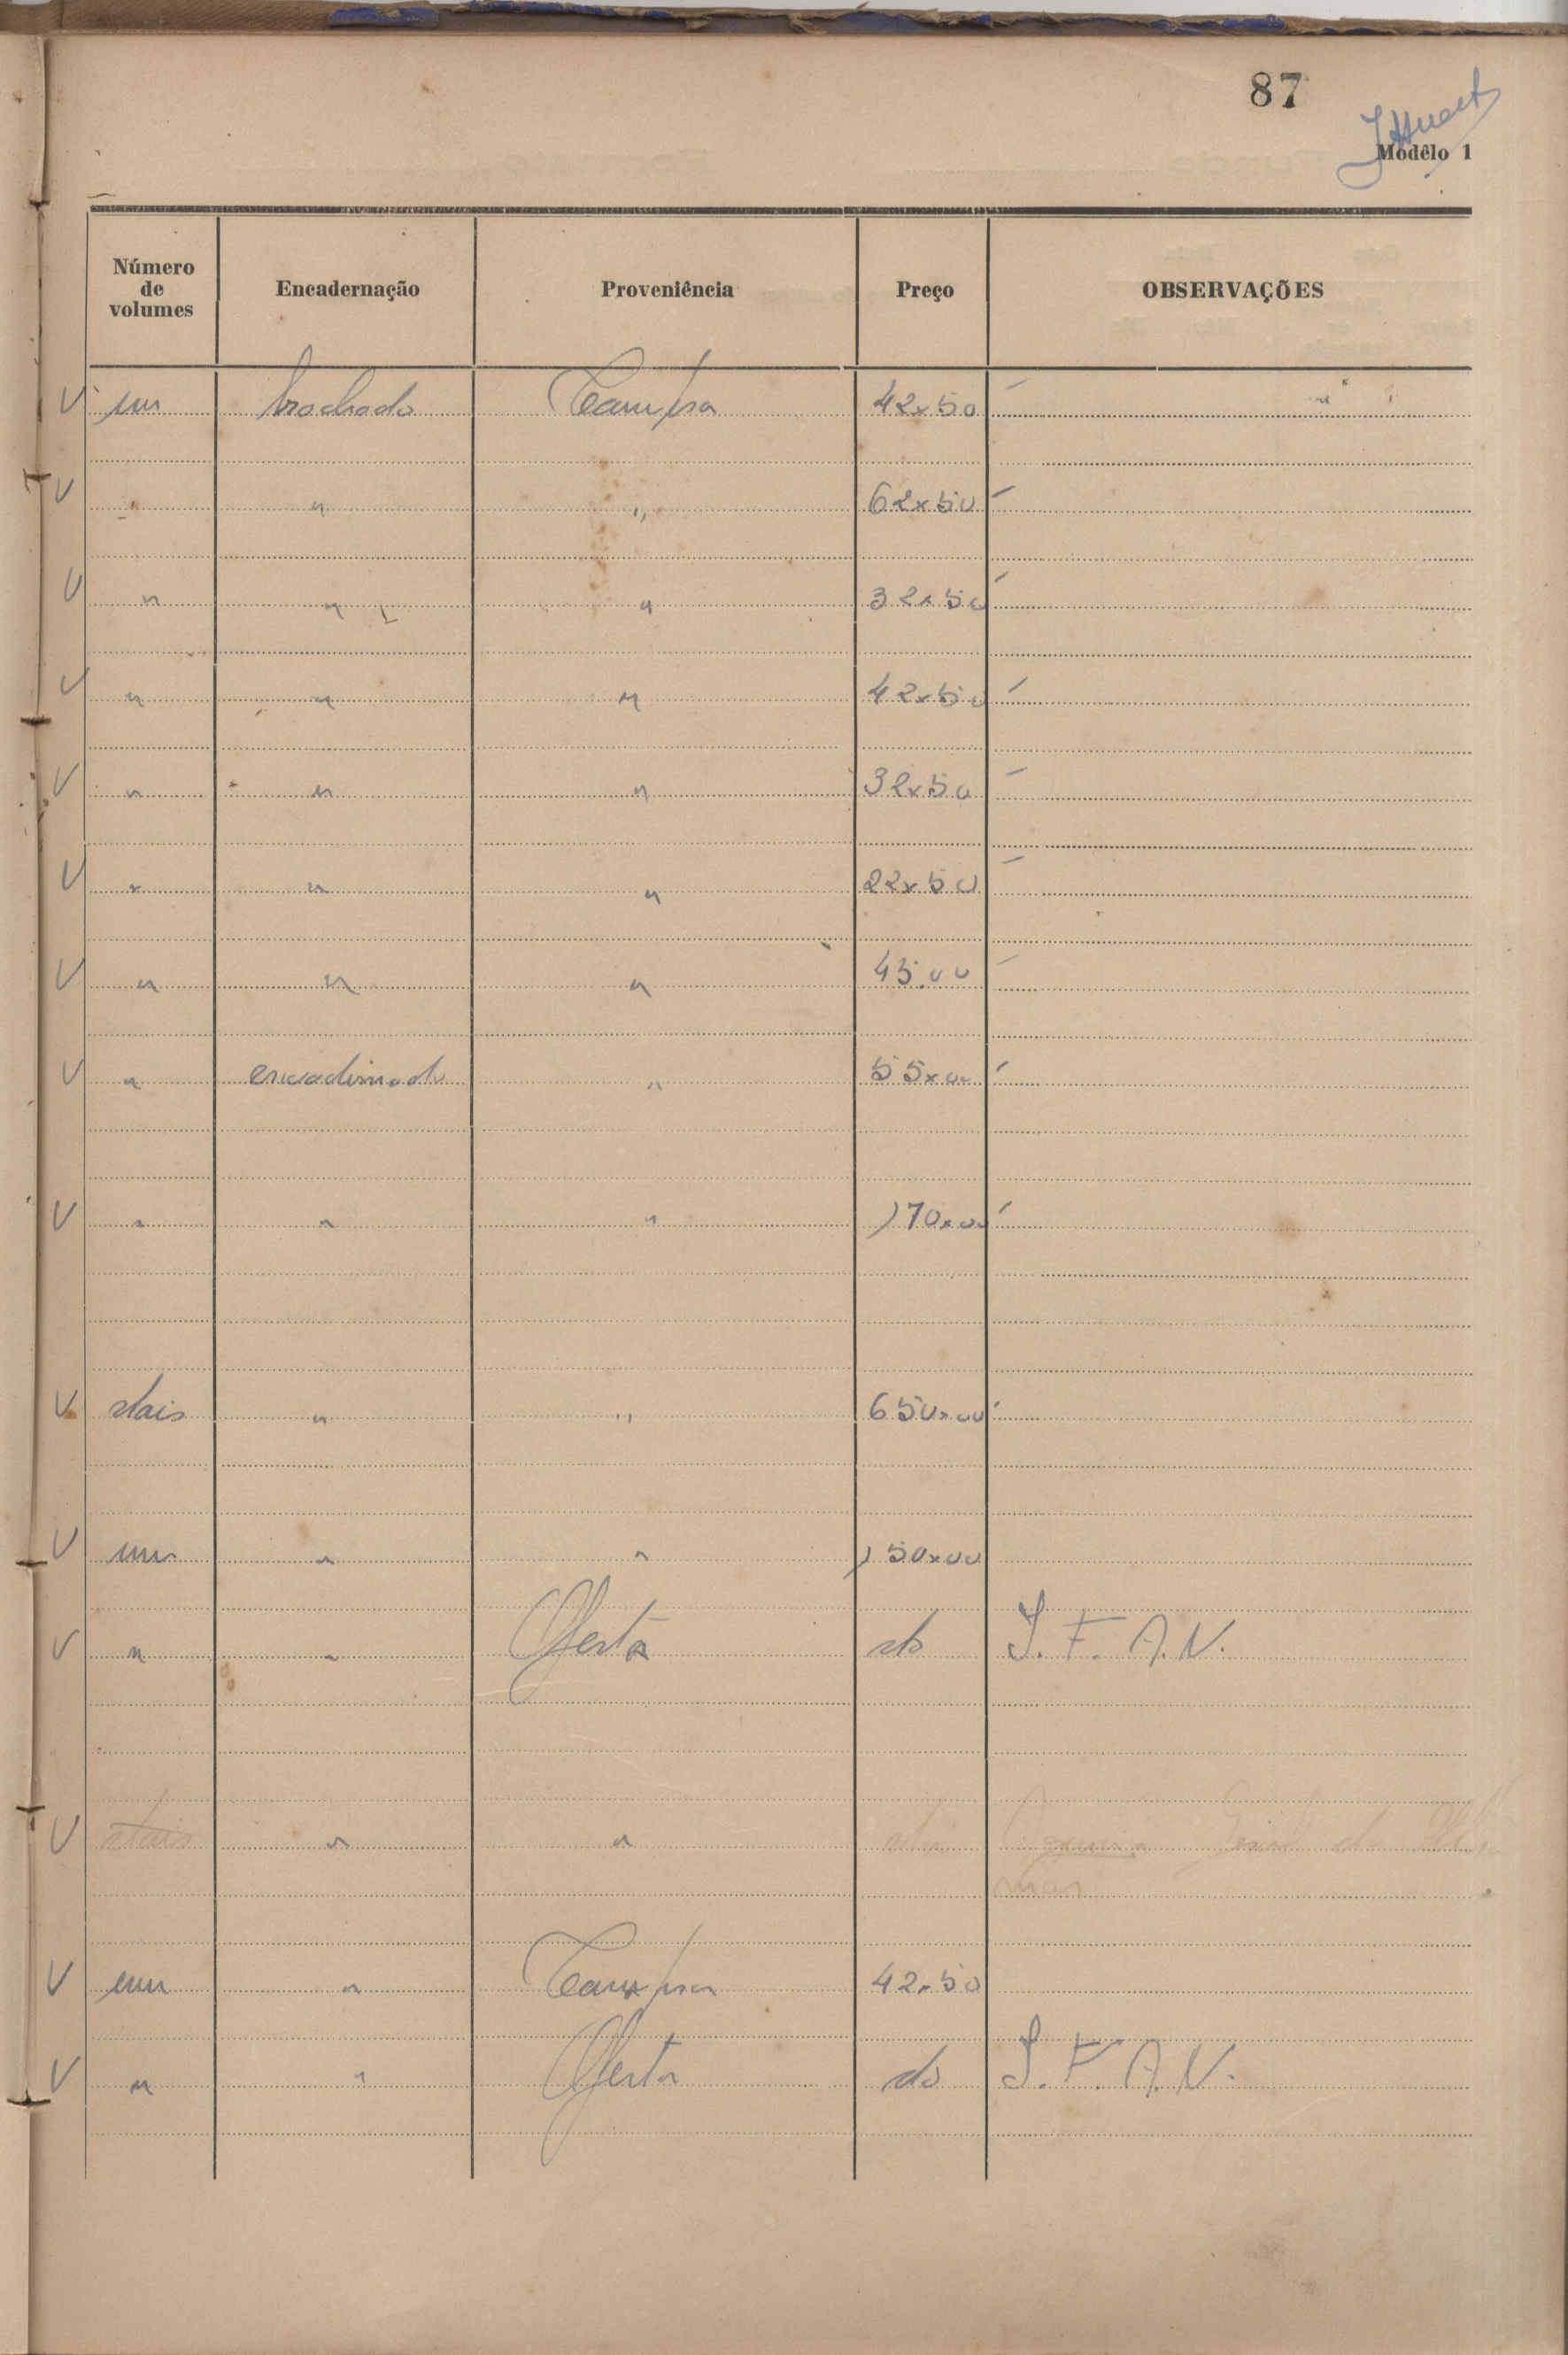 87
Modêlo 1
Número de volumes Encadernação Proveniência Preço OBSERVAÇÕES
V um brochado Compra 42x50 -
V " " " 62x50 -
V " " " 32x50 -
V " " " 42x50 -
V " " " 32x50 -
V " " " 22x50 -
V " " " 45.00 -
V " encadernado " 55x00 -
V " " " 170x00 -
V dois " " 650x00 -
V um " " 150x00
V " " Oferta do I. F. A. N.
V dois " "
V um " Compra 42.50
V " " Oferta do I. F. A. N.